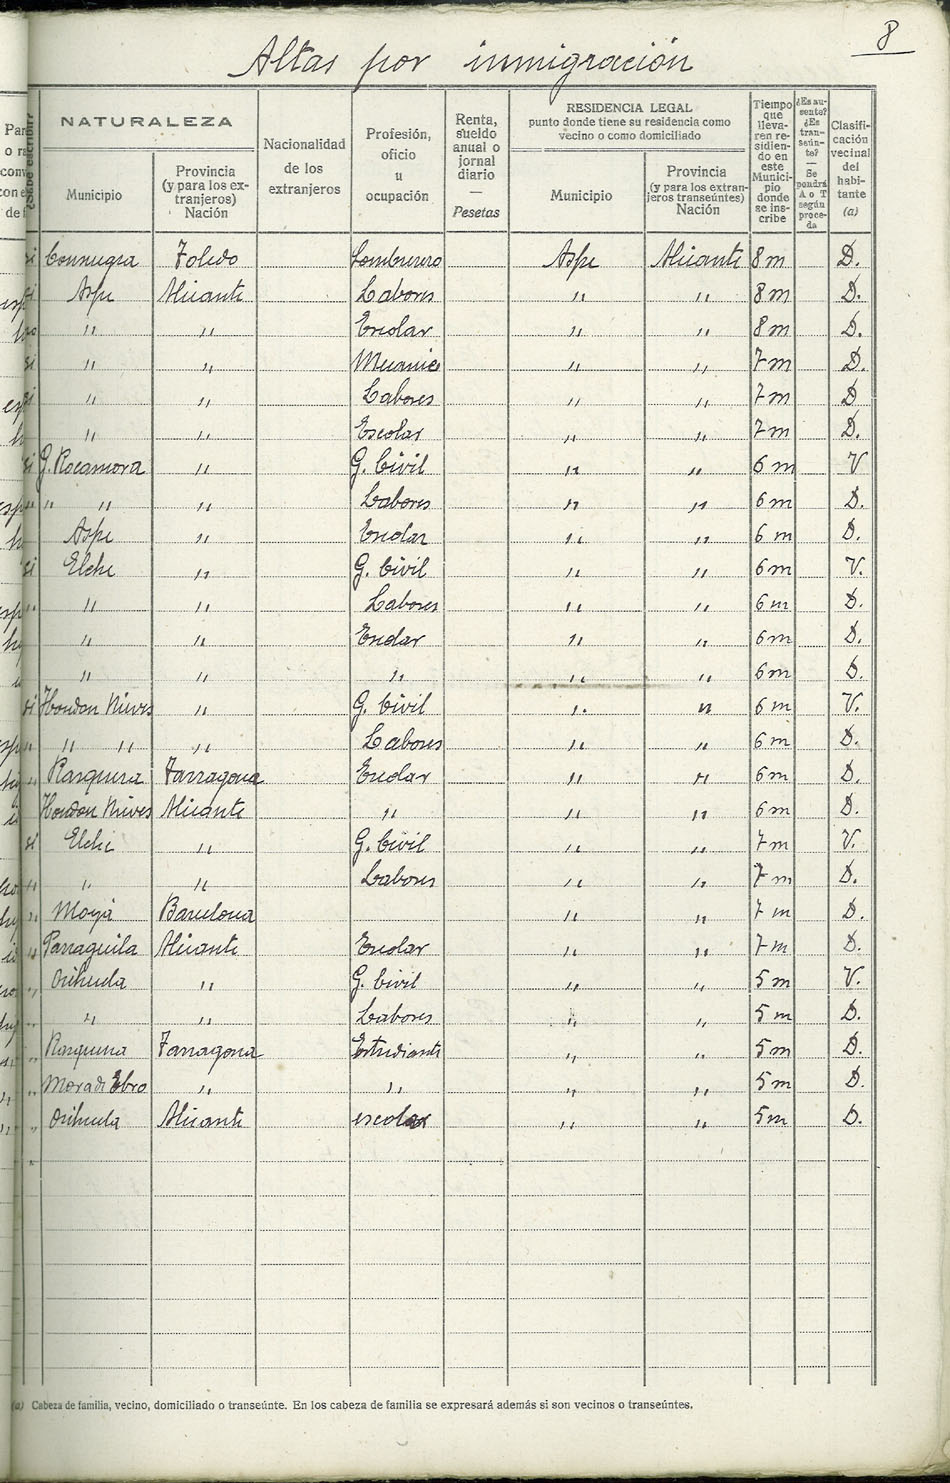 8
Altas por inmigración
¿Sabe escribir?
NATURALEZA
Municipio
Provincia (y para los extranjeros) Nación
Nacionalidad de los extranjeros
Profesión, oficio u ocupación
Renta, sueldo anual o jornal diario — Pesetas
RESIDENCIA LEGAL
punto donde tiene su residencia como vecino o como domiciliado
Municipio
Provincia (y para los extranjeros transeúntes) Nación
Tiempo que llevaren residiendo en este Municipio donde se inscribe
¿Es ausente? ¿Es transeúnte? — Se pondrá A o T según proceda
Clasificación vecinal del habitante (a)
si Toledo Sombrerero Aspe Alicante 8 m D.
Aspe Alicante Labores " " 8 m D.
" " Escolar " " 8 m D.
si " " Mecanic " " 7 m D.
" " Labores " " 7 m D
" " Escolar " " 7 m D.
si G. Rocamora " G. Civil " " 6 m V
" " " Labores " " 6 m D.
Aspe " Escolar " " 6 m D.
si Elche " G. Civil " " 6 m V.
" " " Labores " " 6 m D.
" " Escolar " " 6 m D.
" " " " " 6 m D.
si Hondon Nieves " G. Civil " " 6 m V.
" " " " Labores " " 6 m D.
" Rasquera Tarragona Escolar " " 6 m D.
Hondon Nieves Alicante " " " 6 m D.
si Elche " G. Civil " " 7 m V.
" " " Labores " " 7 m D.
" Moyá Barcelona " " 7 m D.
" Alicante Escolar " " 7 m D.
" Orihuela " G. Civil " " 5 m V.
" " " Labores " " 5 m D.
" Rasquera Tarragona Estudiante " " 5 m D.
" Mora di Ebro " " " " 5 m D.
" Orihuela Alicante escolar " " 5 m D.
(a) Cabeza de familia, vecino, domiciliado o transeúnte. En los cabeza de familia se expresará además si son vecinos o transeúntes.